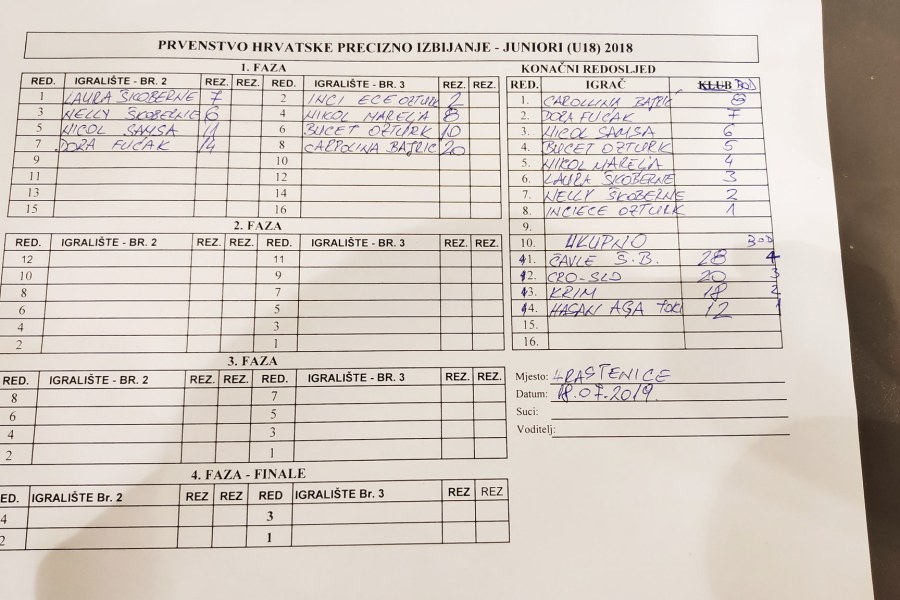 PRVENSTVO HRVATSKE PRECIZNO IZBIJANJE - JUNIORI (U18) 2018
1. FAZA
RED. IGRALIŠTE - BR. 2 REZ. REZ. RED. IGRALIŠTE - BR. 3 REZ. REZ.
1 LAURA ŠKOBERNE 7 2 INCI ECE OZTURK 2
3 NELLY ŠKOBERNE 6 4 NIKOL MARELJA 8
5 NICOL SAMSA 11 6 BUCET OZTURK 10
7 DORA FUČAK 14 8 CARPOLINA BAJRIC 20
9 10
11 12
13 14
15 16
2. FAZA
RED. IGRALIŠTE - BR. 2 REZ. REZ. RED. IGRALIŠTE - BR. 3 REZ. REZ.
12 11
10 9
8 7
6 5
4 3
2 1
3. FAZA
RED. IGRALIŠTE - BR. 2 REZ. REZ. RED. IGRALIŠTE - BR. 3 REZ. REZ.
8 7
6 5
4 3
2 1
4. FAZA - FINALE
ED. IGRALIŠTE Br. 2 REZ REZ RED IGRALIŠTE Br. 3 REZ REZ
4 3
2 1
KONAČNI REDOSLJED
RED. IGRAČ KLUB BOD
1. CAROLLINA BAJRIĆ 8
2. DORA FUČAK 7
3. NICOL SAMSA 6
4. BUCET OZTURK 5
5. NIKOL MARELJA 4
6. LAURA ŠKOBERNE 3
7. NELLY ŠKOBERNE 2
8. INCIECE OZTURK 1
9.
10. UKUPNO BOD
11. ČAVLE Š.B. 28 4
12. CRO-SLO 20 3
13. KRIM 18 2
14. HASAN AGA TOKI 12 1
15.
16.
Mjesto: HRASTENICE
Datum: 18.07.2019.
Suci:
Voditelj: